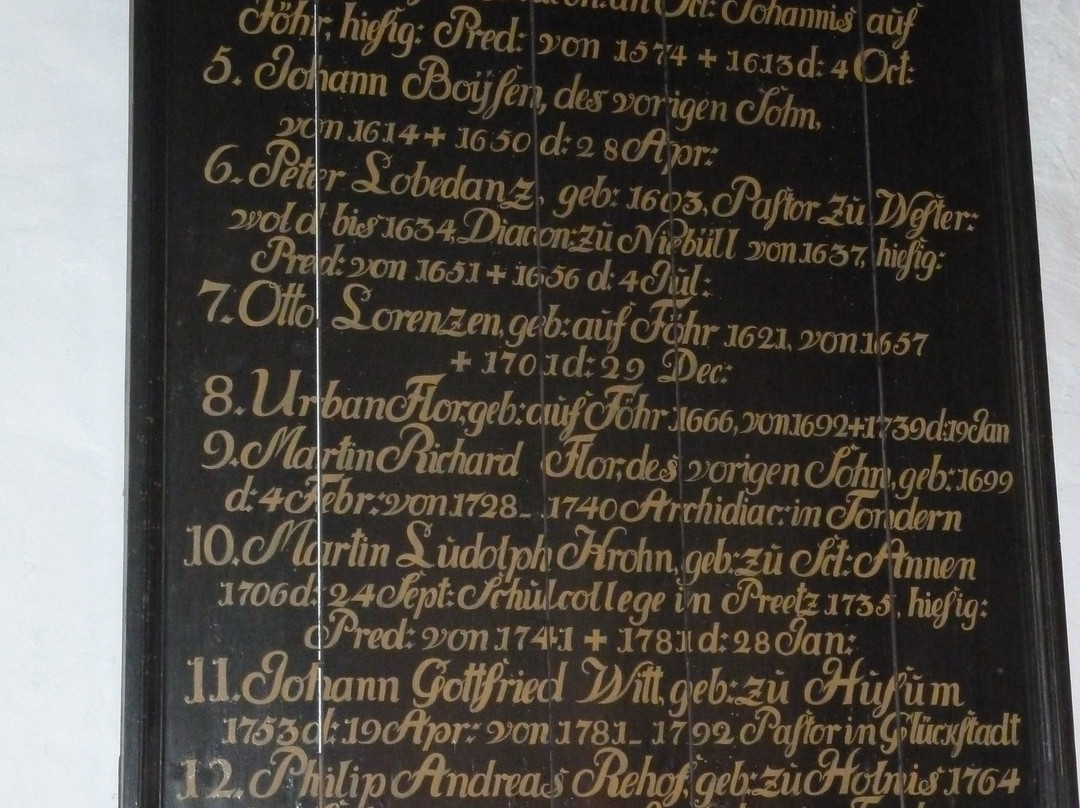 Johannis auf
Föhr, hiesig: Pred: von 1574 + 1613 d: 4 Oct:
5. Johann Boÿsen, des vorigen Sohn,
von 1614 + 1650 d: 28 Apr:
6. Peter Lobedanz, geb: 1603, Pastor zu Wester:
wold bis 1634, Diacon: zu Niebüll von 1637, hiesig:
Pred: von 1651 + 1656 d: 4 Jul:
7. Otto Lorenzen, geb: auf Föhr 1621, von 1657
+ 1701 d: 29 Dec:
8. Urban Flor, geb: auf Föhr 1666, von 1692 + 1739 d: 19 Jan
9. Martin Richard Flor, des vorigen Sohn, geb: 1699
d: 4 Febr: von 1728_ 1740 Archidiac: in Tondern
10. Martin Ludolph Krohn, geb: zu Sct: Annen
1706 d: 24 Sept: Schulcollege in Preetz 1735, hiesig:
Pred: von 1741 + 1781 d: 28 Jan:
11. Johann Gottfried Witt, geb: zu Husum
1753 d: 19 Apr: von 1781_ 1792 Pastor in Glückstadt
12. Philip Andreas Rehof, geb: zu Holnis 1764